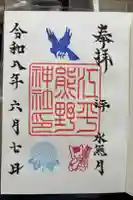 奉拝
水無月
江平
熊野
神社印
令和八年六月七日